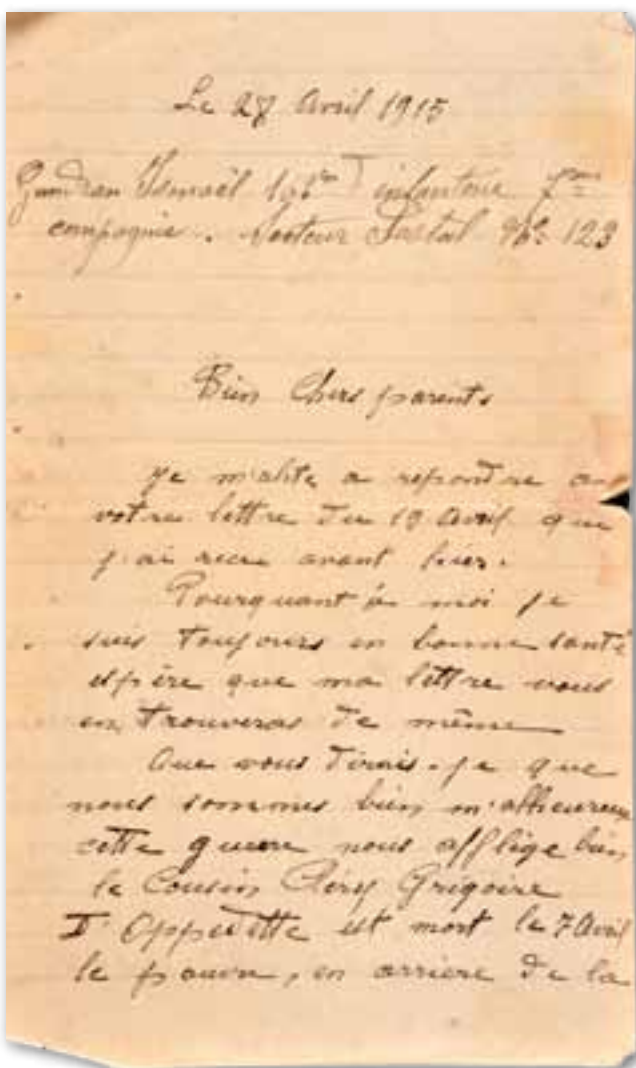 Le 28 Avril 1915
Gondran Ismaël infanterie 7me
compagnie. Secteur Postal No 123
Bien Chers parents
Je m'alite a repondre a
votre lettre du 19 Avril que
j'ai recu avant hier.
Pourquant à moi je
suis toujours en bonne santé
espère que ma lettre vous
en trouveras de même
Que vous dirais-je que
nous sommes bien m'alheureux
cette guerre nous afflige bien
le Cousin Grégoire
D'Oppedette est mort le 7 Avril
le pauvre, en arriere de la